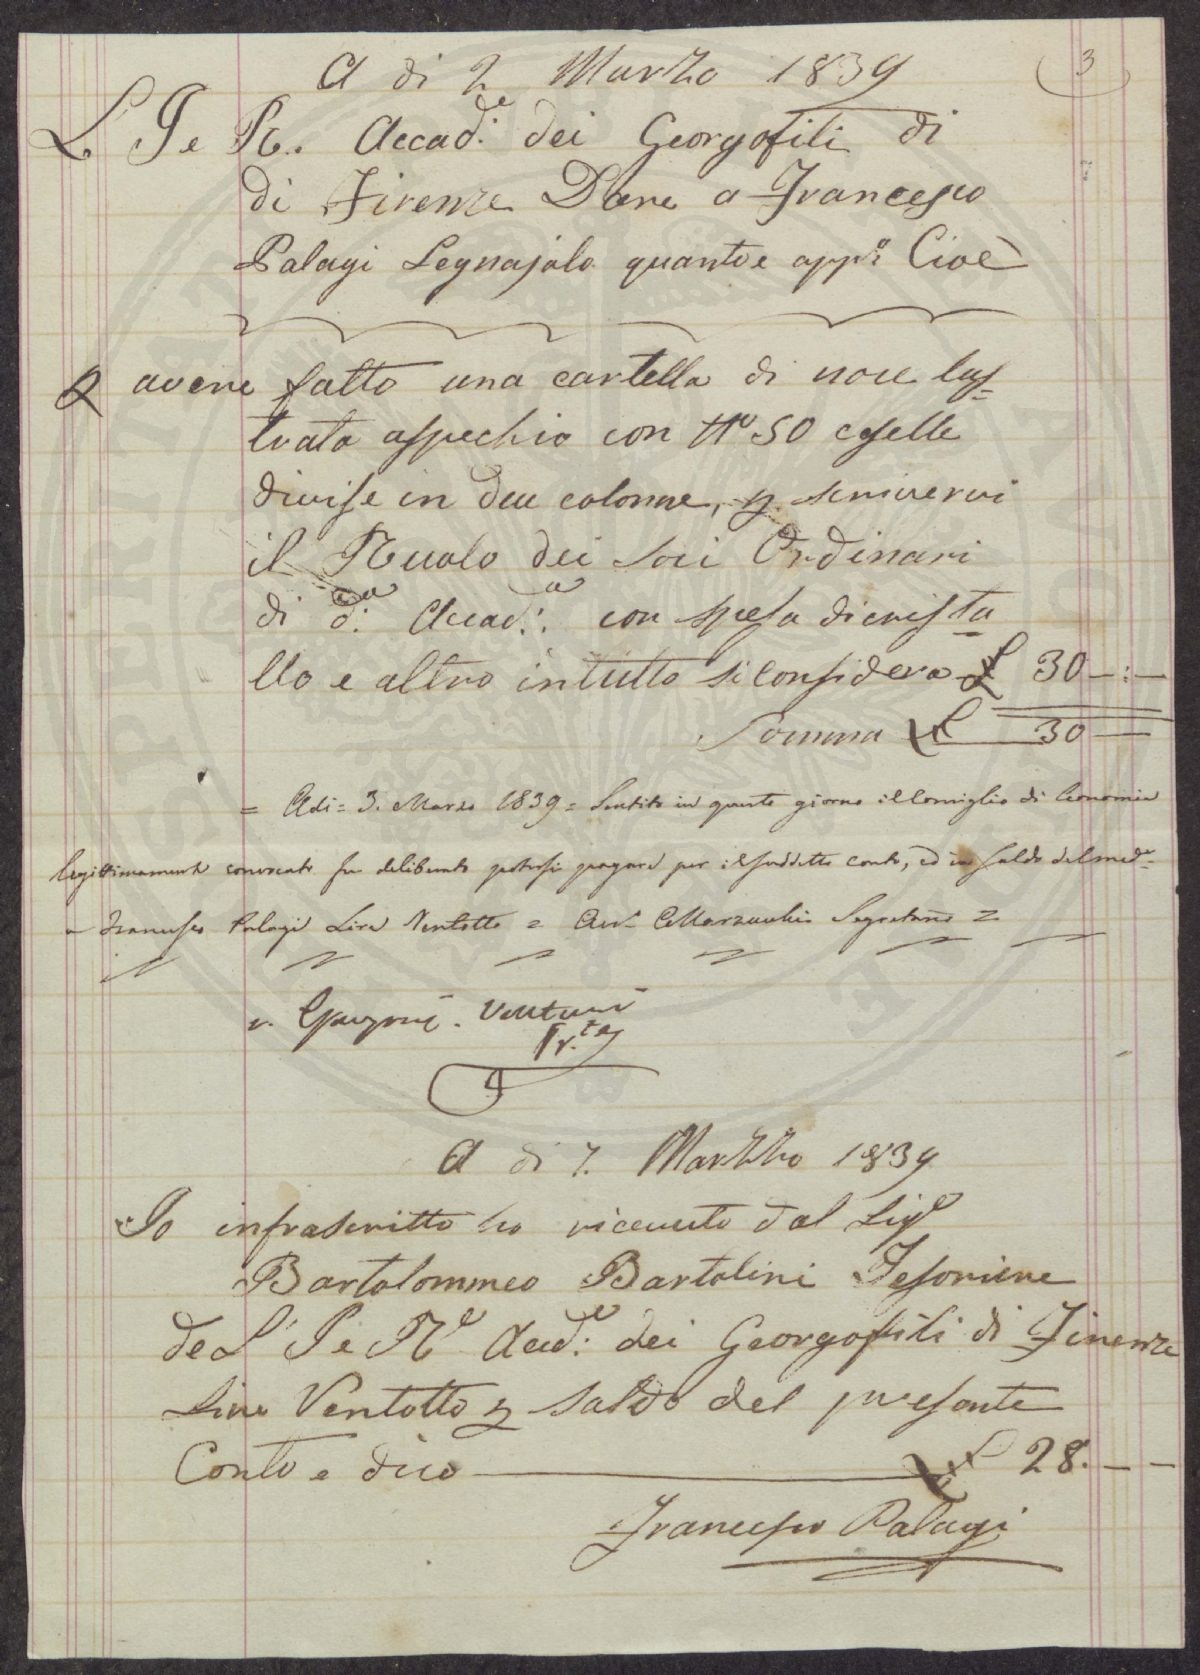 A di 2 Marzo 1839
3
L' I e R. Accad.e dei Georgofili di
di Firenze Dare a Francesco
Palagi Legnajolo quanto e app.o Cioè
avere fatto una cartella di noce lus=
trata aspechio con No 50 caselle
divise in due colonne, p scrivervi
il Ruolo dei Soci Ordinari
di d.a Accad.a con spesa di crista
llo e altro in tutto si considera £ 30 — : —
Somma £ 30 —
= Adi = 3. Marzo 1839 = Sentito in questo giorno il Consiglio di Economia
legittimamente convocato fu deliberato potersi pagare per il suddetto conto, ed in saldo del med.o
a Francesco Palagi Lire Ventotto = Segretario =
v. Venturi
A di 7. Marzzo 1839
Io infrascritto ho ricevuto dal Sig.e
Bartolommeo Bartolini Tesoriere
del' I e R.e Accd.e dei Georgofili di Firenze
Lire Ventotto p saldo del presente
Conto e dico £ 28. — —
Francesco Palagi